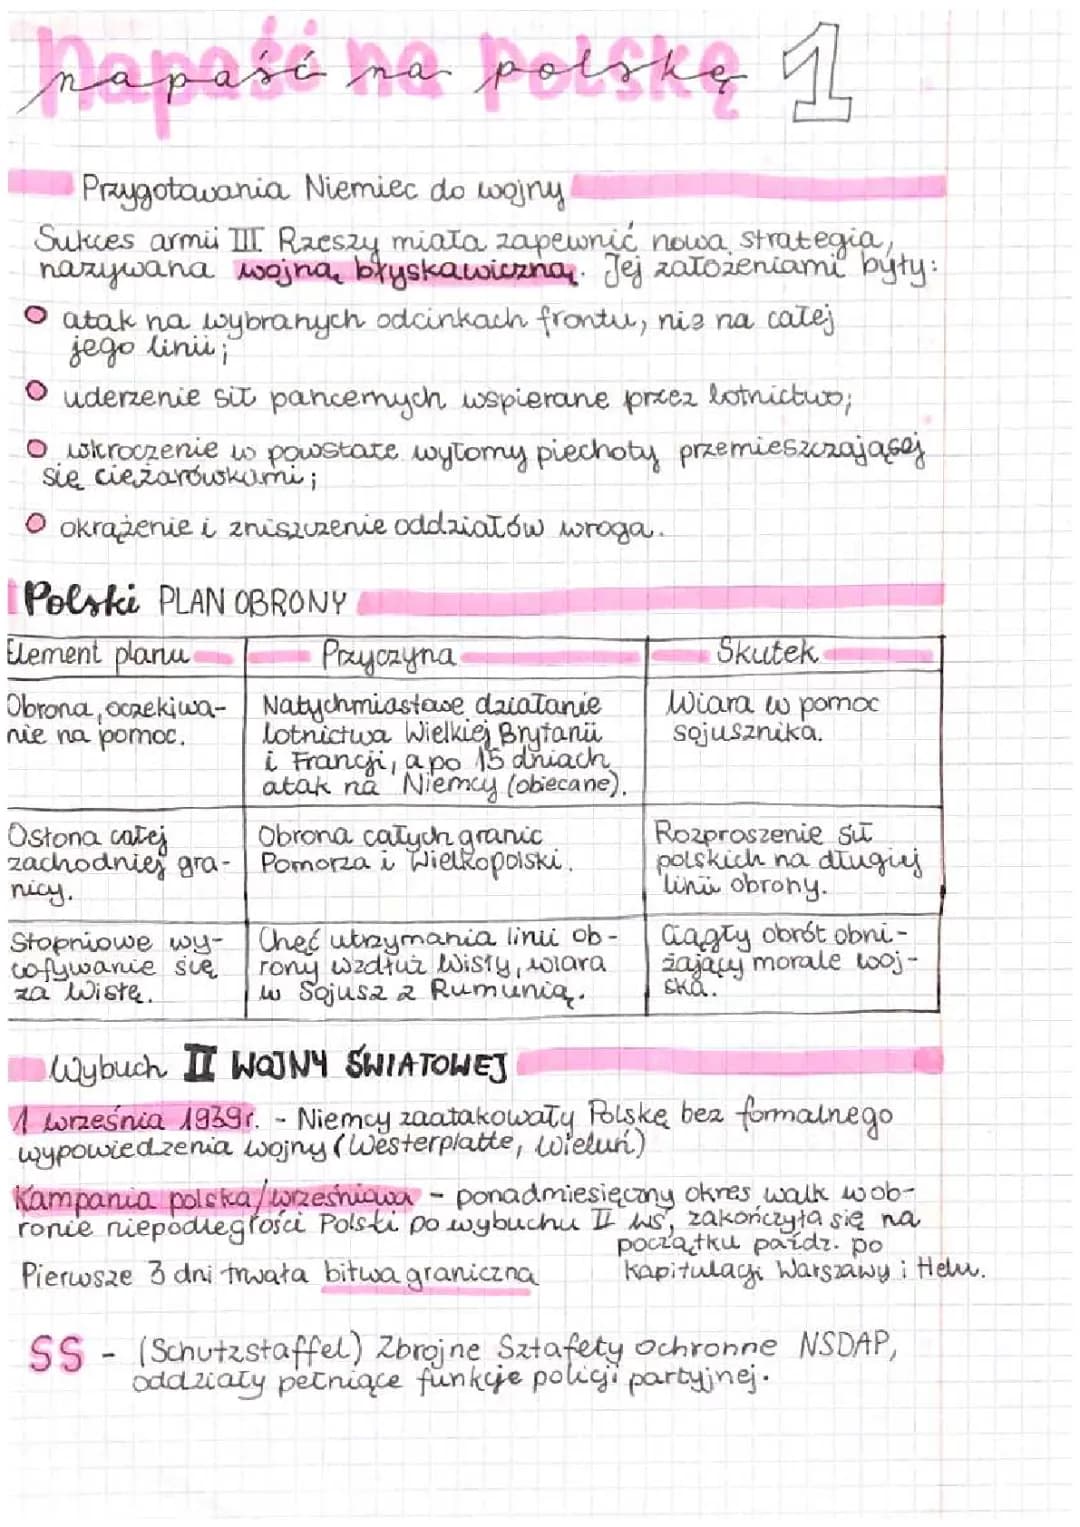 napaść na polskę 1
Przygotowania Niemiec do wojny
Sukces armii III Rzeszy miała zapewnić nowa strategia,
nazywana wojną błyskawiczną. Jej założeniami były:
atak na wybranych odcinkach frontu, niż na całej
jego linii;
uderzenie sił pancernych wspierane przez lotnictwo;
wkroczenie w powstałe wyłomy piechoty przemieszczającej
się ciężarówkami;
okrążenie i zniszczenie oddziałów wroga.
Polski PLAN OBRONY
Element planu Przyczyna Skutek
Obrona, oczekiwa-
nie na pomoc.
Natychmiastowe działanie
lotnictwa Wielkiej Brytanii
i Francji, a po 15 dniach
atak na Niemcy (obiecane).
Wiara w pomoc
sojusznika.
Osłona całej
zachodniej gra-
nicy.
Obrona całych granic
Pomorza i Wielkopolski.
Rozproszenie sił
polskich na długiej
linii obrony.
Stopniowe wy-
cofywanie się
za Wisłę.
Chęć utrzymania linii ob-
rony wzdłuż Wisły, wiara
w Sojusz z Rumunią.
Ciągły obrót obni-
żający morale woj-
ska.
Wybuch II WOJNY ŚWIATOWEJ
1 września 1939r. - Niemcy zaatakowały Polskę bez formalnego
wypowiedzenia wojny (Westerplatte, Wieluń)
Kampania polska/wrześniowa - ponadmiesięczny okres walk w ob-
ronie niepodległości Polski po wybuchu II wś, zakończyła się na
początku paźdz. po
kapitulacji Warszawy i Helu.
Pierwsze 3 dni trwała bitwa graniczna
SS - (Schutzstaffel) Zbrojne Sztafety Ochronne NSDAP,
oddziały pełniące funkcje policji partyjnej.